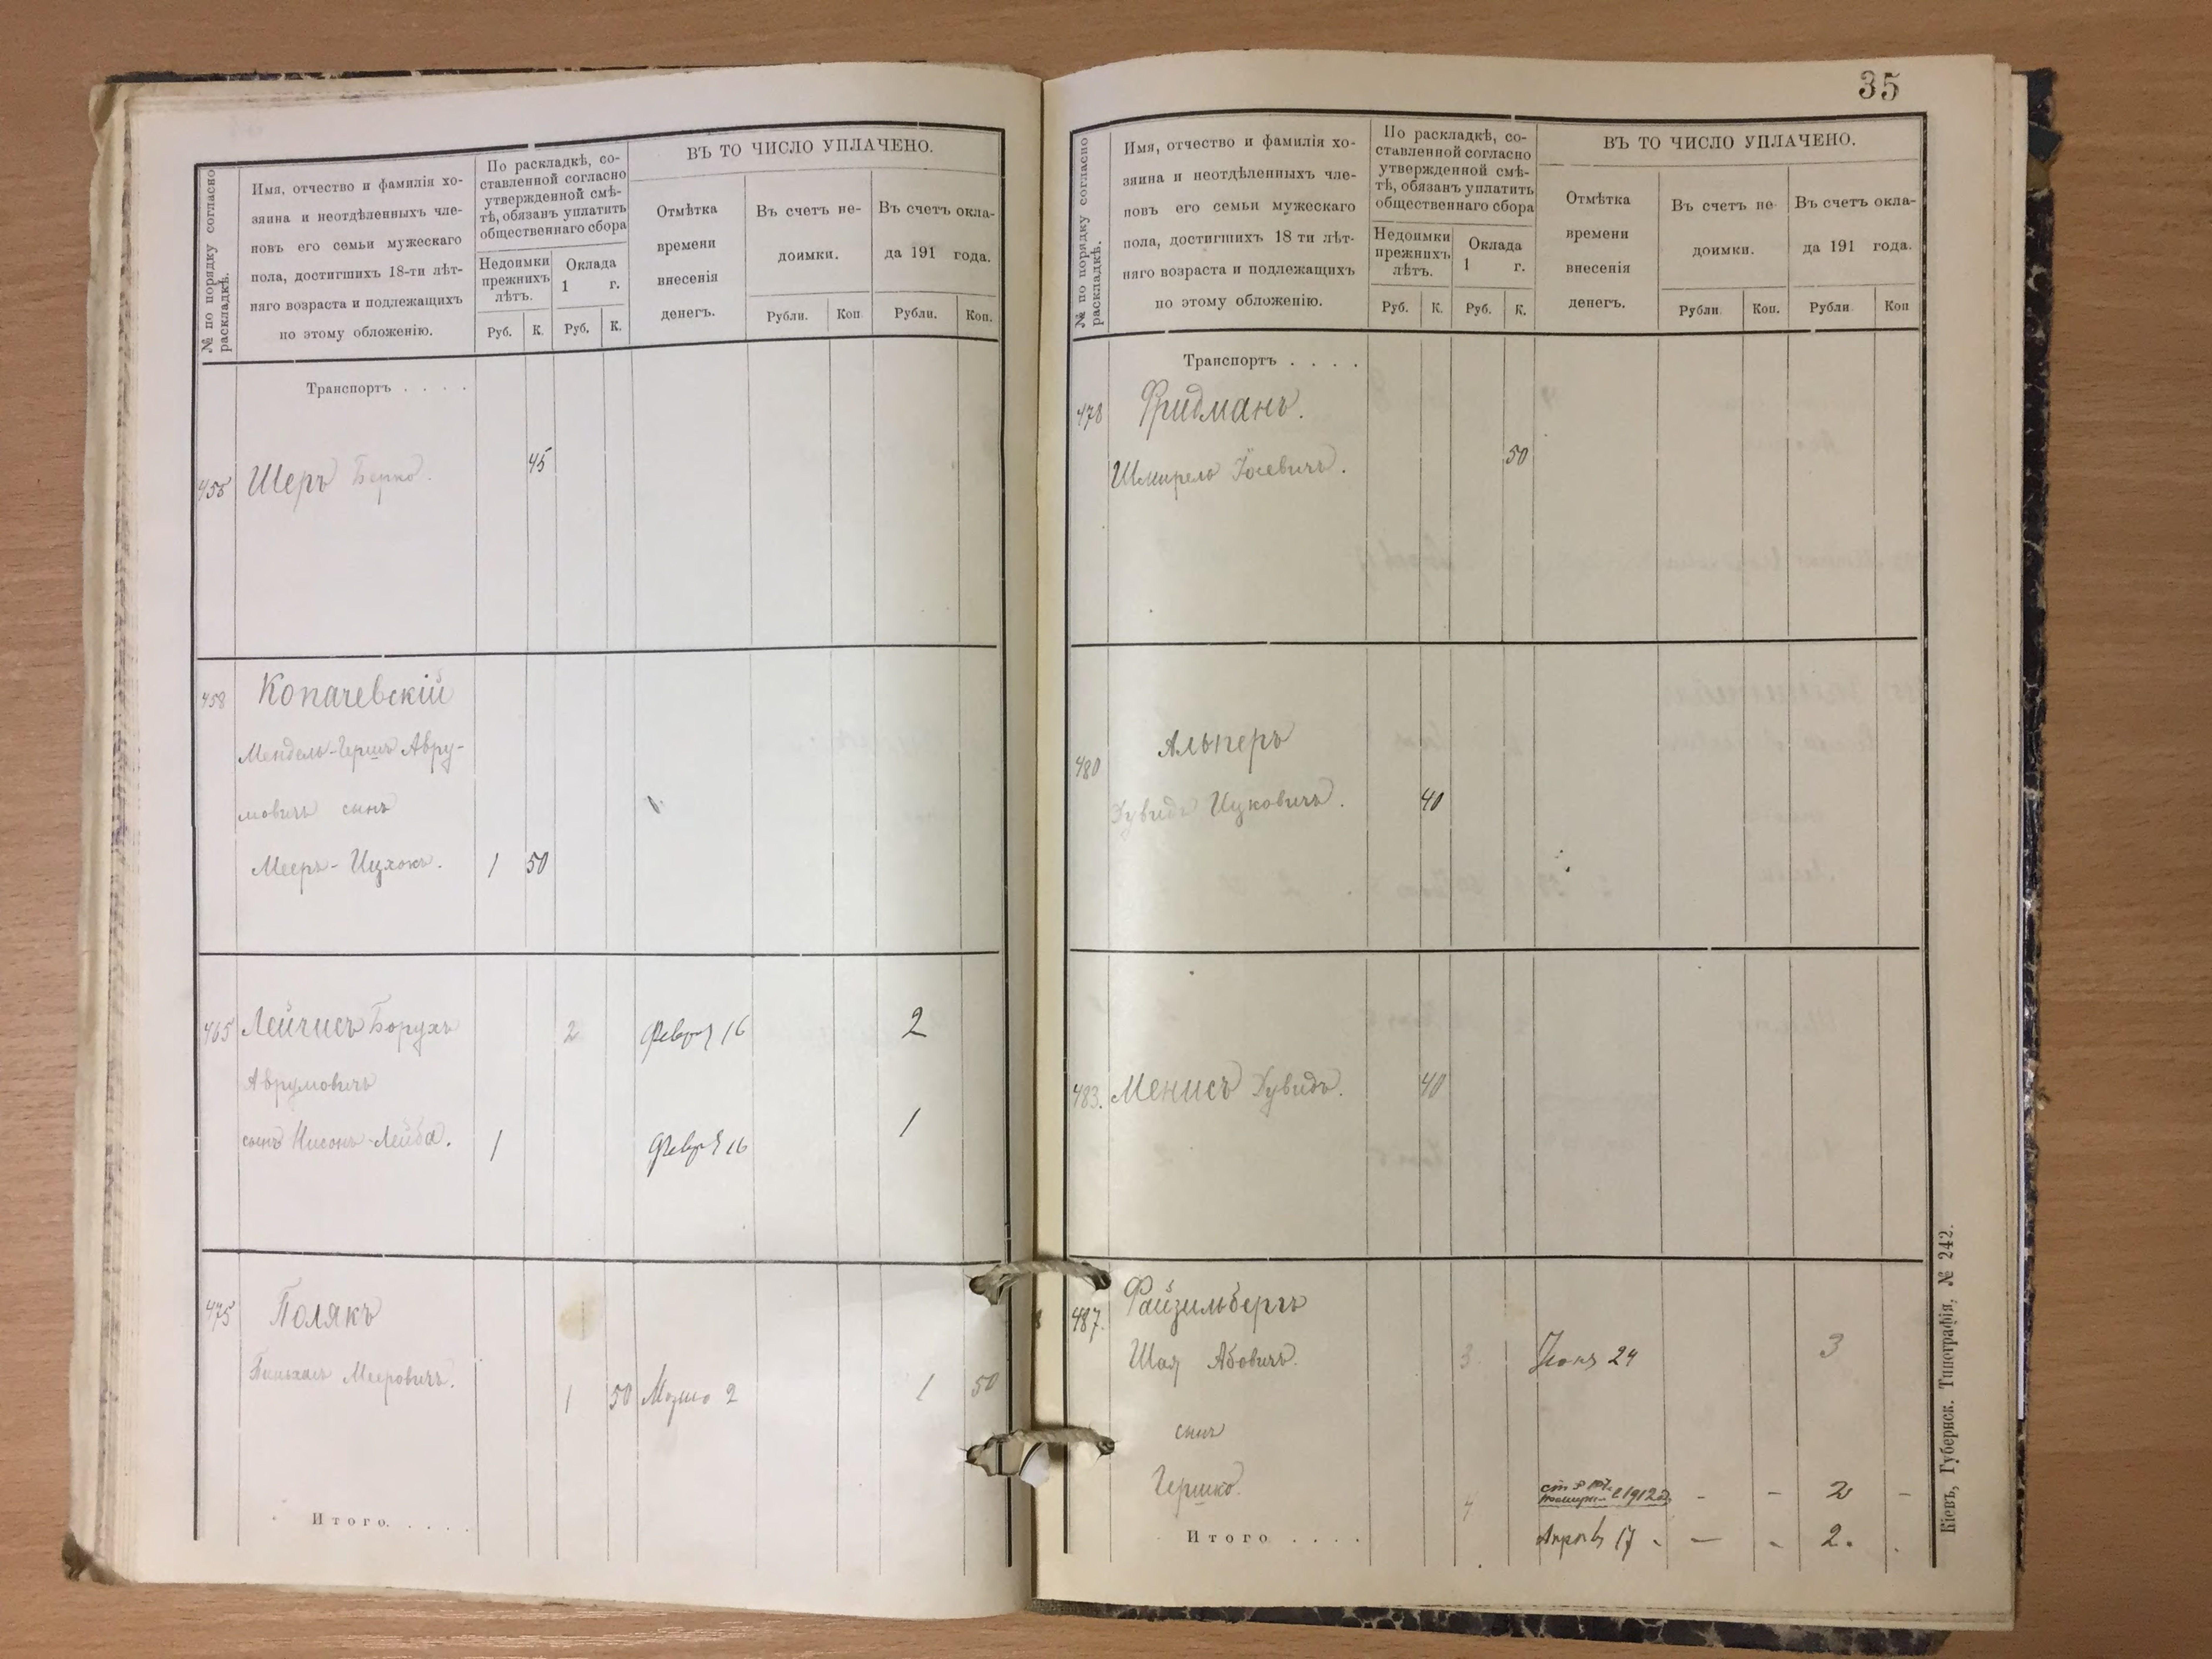 № по порядку согласно
раскладкѣ.
Имя, отчество и фамилія хо-
зяина и неотдѣленныхъ чле-
новъ его семьи мужескаго
пола, достигшихъ 18-ти лѣт-
няго возраста и подлежащихъ
по этому обложенію.
По раскладкѣ, со-
ставленной согласно
утвержденной смѣ-
тѣ, обязанъ уплатить
общественнаго сбора
Недоимки
прежнихъ
лѣтъ.
Оклада
1 г.
Руб. К. Руб. К.
ВЪ ТО ЧИСЛО УПЛАЧЕНО.
Отмѣтка
времени
внесенія
денегъ.
Въ счетъ не-
доимки.
Въ счетъ окла-
да 191 года.
Рубли. Коп Рубли. Коп.
Транспортъ . . . .
455 Шеръ Берко. 45
458 Копачевскій
Мендель-Гершъ Авру-
мовичъ сынъ
Мееръ-Ицхокъ. 1 50
465 Лейчисъ Борухъ 2 Февр 16 2
Аврумовичъ
сынъ Нисонъ-Лейба. 1 Февр 16 1
475 Полякъ
Пинхасъ Меировичъ. 1 50 2 1 50
Итого. . . . .
35
№ по порядку согласно
раскладкѣ.
Имя, отчество и фамилія хо-
зяина и неотдѣленныхъ чле-
новъ его семьи мужескаго
пола, достигшихъ 18 ти лѣт-
няго возраста и подлежащихъ
по этому обложенію.
По раскладкѣ, со-
ставленной согласно
утвержденной смѣ-
тѣ, обязанъ уплатить
общественнаго сбора
Недоимки
прежнихъ
лѣтъ.
Оклада
1 г.
Руб. К. Руб. К.
ВЪ ТО ЧИСЛО УПЛАЧЕНО.
Отмѣтка
времени
внесенія
денегъ.
Въ счетъ не-
доимки.
Въ счетъ окла-
да 191 года.
Рубли Коп. Рубли Коп
Транспортъ . . . .
478 Фридманъ.
Шмирелъ Іосевичъ. 50
480 Альперъ
Дувидъ Ицковичъ. 40
483. Менисъ Дувидъ. 40
487. Файзильбергъ
Шая Абовичъ. 3. Іюня 24 3
сынъ
Гершко. 4 1912 - - 2 -
Итого . . . . Апрель 17 - — - 2. .
Кіевъ, Губернск. Типографія, № 242.